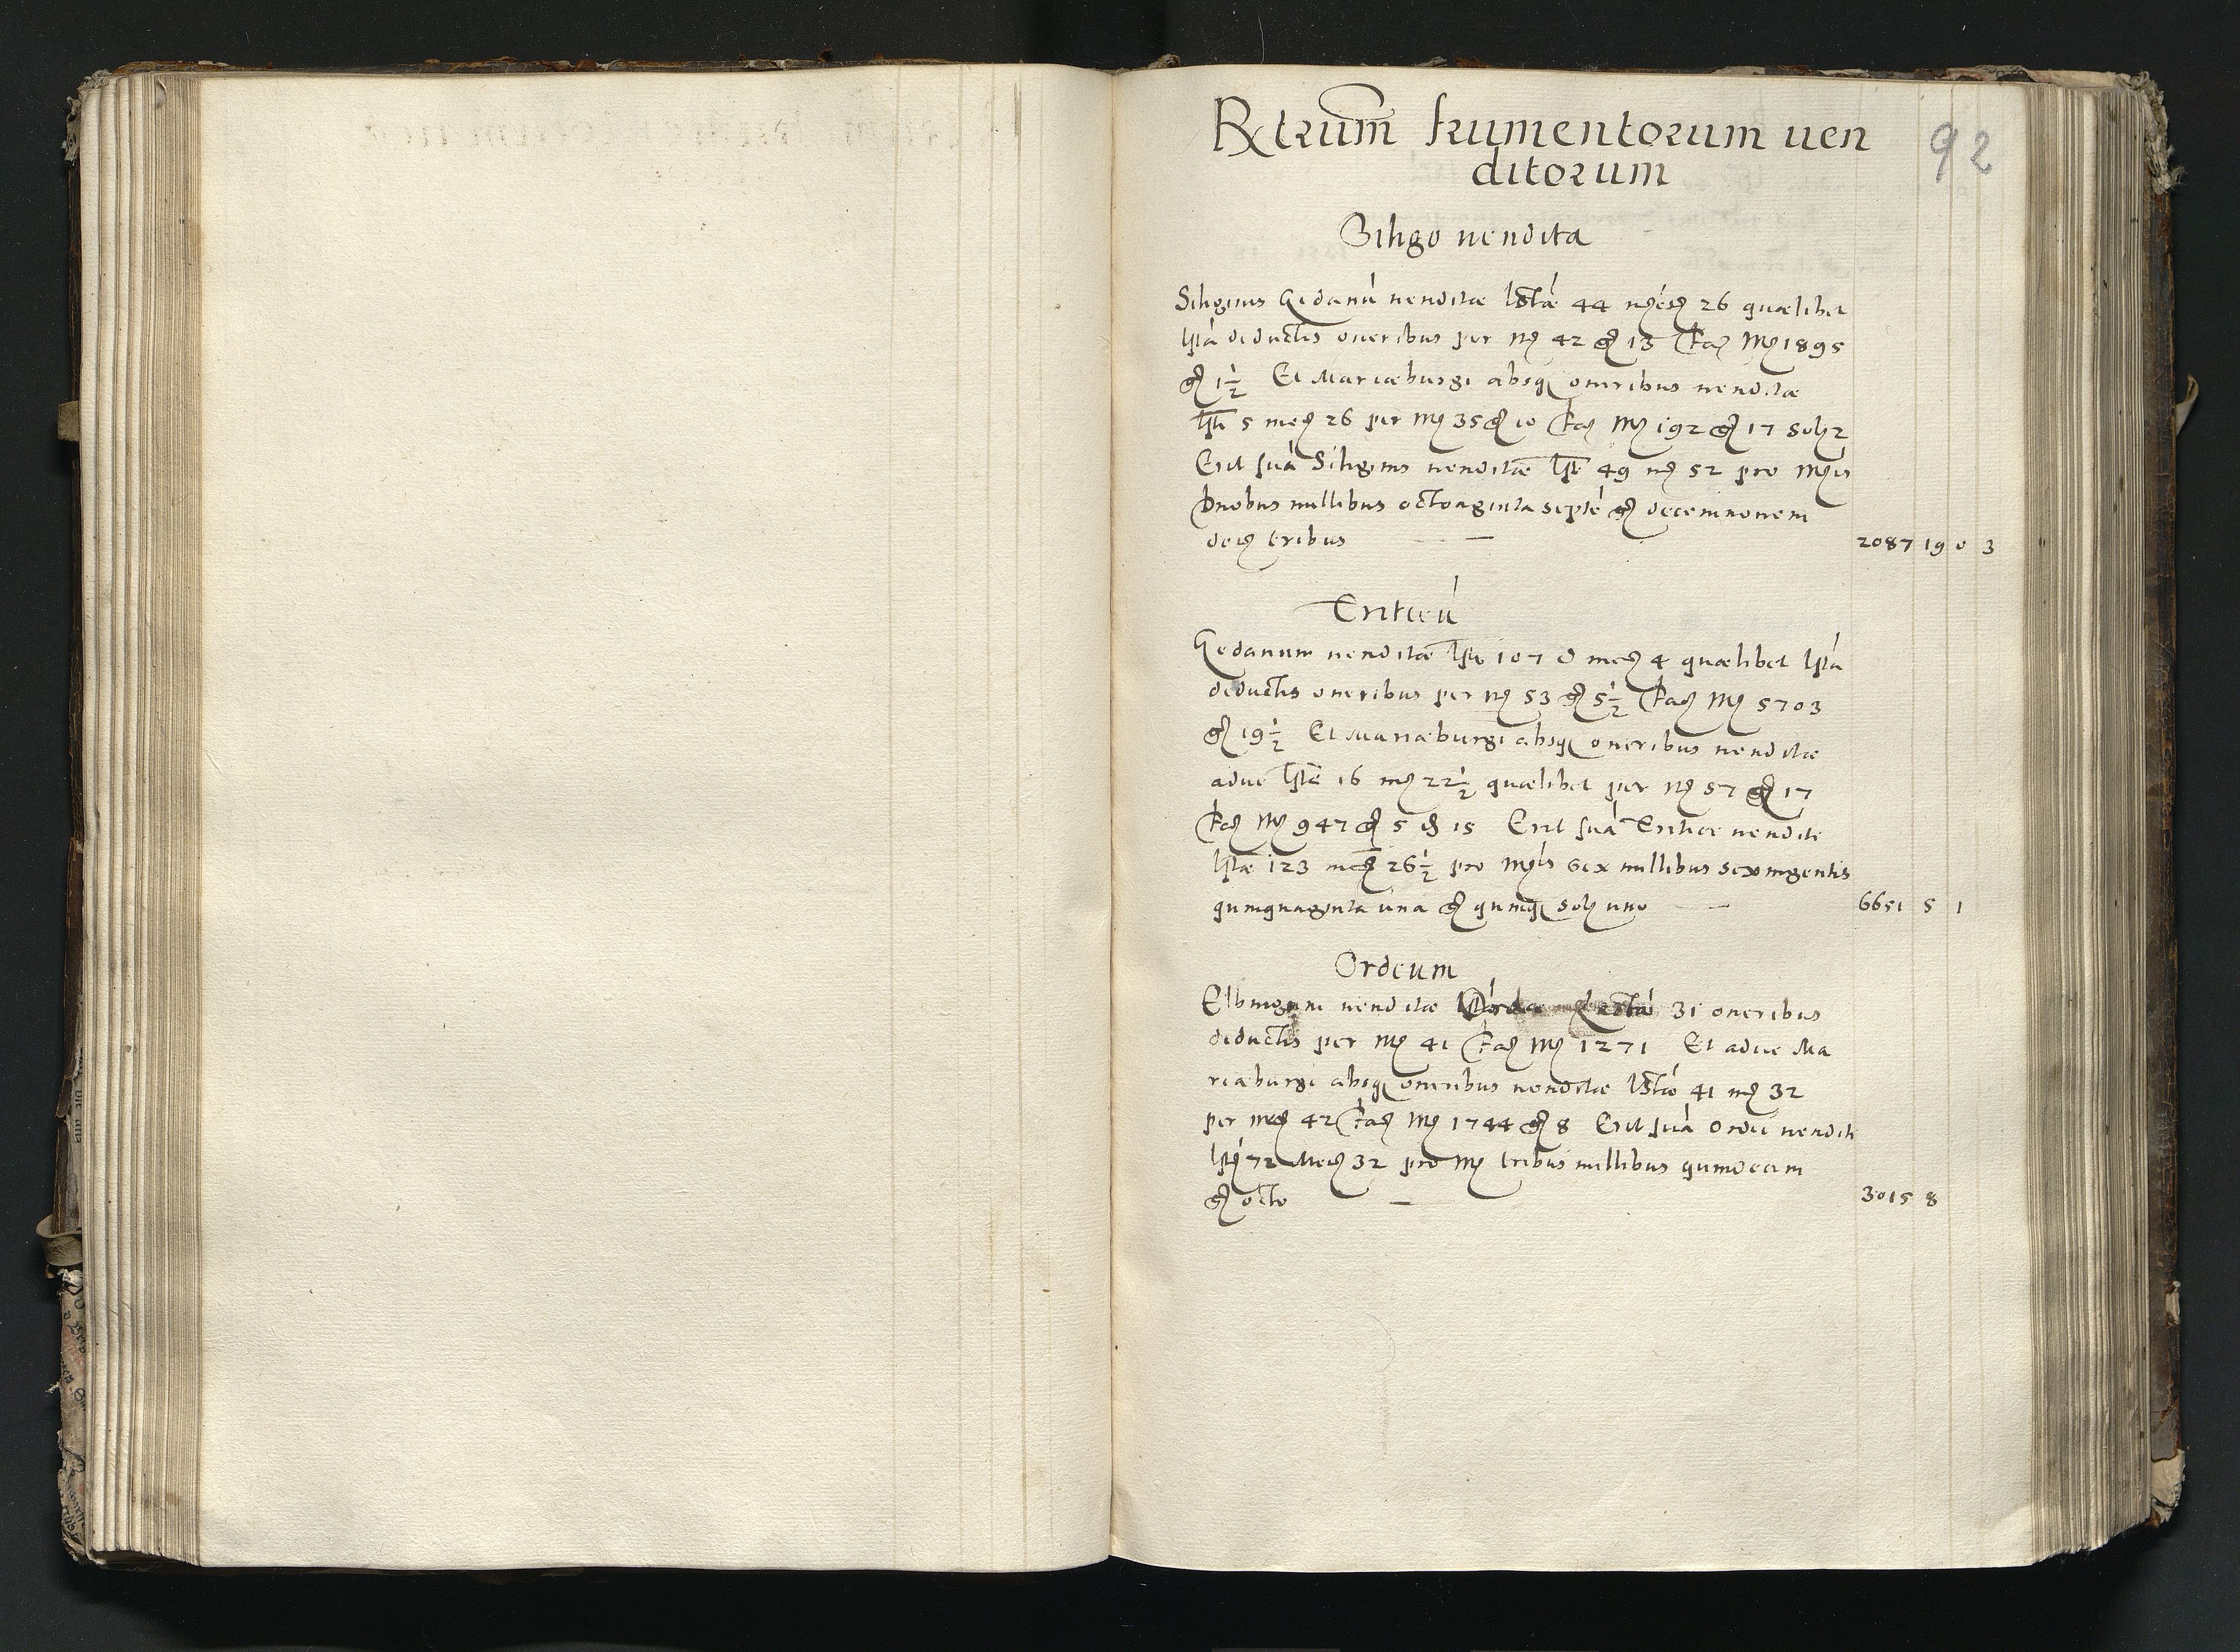 Rxtrum frumentorum uen
ditorum
92
Siligo uendita
Siliginis Gedanū uenditae lstae 44 mēs 26 quaelibet
lsta deductis oneribus per mͬ 42 gͬ 13 fac mͬ 1895
gͬ 1½ Et Mariaeburgi absq oneribus uenditae
lste 5 mes 26 per mͬ 35 gͬ 10 fac mͬ 192 gͬ 17 sol 2
Erit suā Siliginis uenditae lste 49 ms 52 pro mͬis
Duobus millibus octoaginta septē gͬ decemnouem
deͬ tribus — 2087 19 0 3
Triticū
Gedanum uenditae lste 107 Ꝺ mes 4 quaelibet lsta
deductis oneribus per mͬ 53 gͬ 5½ fac mͬ 5703
gͬ 19½ Et Mariaeburgi absq oneribus uenditae
aduc lste 16 ms 22½ quaelibet per mͬ 57 gͬ 17
fac mͬ 947 gͬ 5 ꝺ 15 Erit suā Tritici uenditi
lstae 123 mes 26½ pro mͬis sex millibus sexingentis
quinquaginta una gͬ quinq sol uno — 6651 5 1
Ordeum
Elbingum uenditae 31 oneribus
deductis per mͬ 41 fac mͬ 1271 Et aduc Ma
riaeburgi absq oneribus uenditae lstae 41 ms 32
per mͬ 42 fac mͬ 1744 gͬ 8 Erit suā Ordei uenditi
lste 72 Mes 32 pro mͬ tribus millibus quindecim
gͬ octo — 3015 8